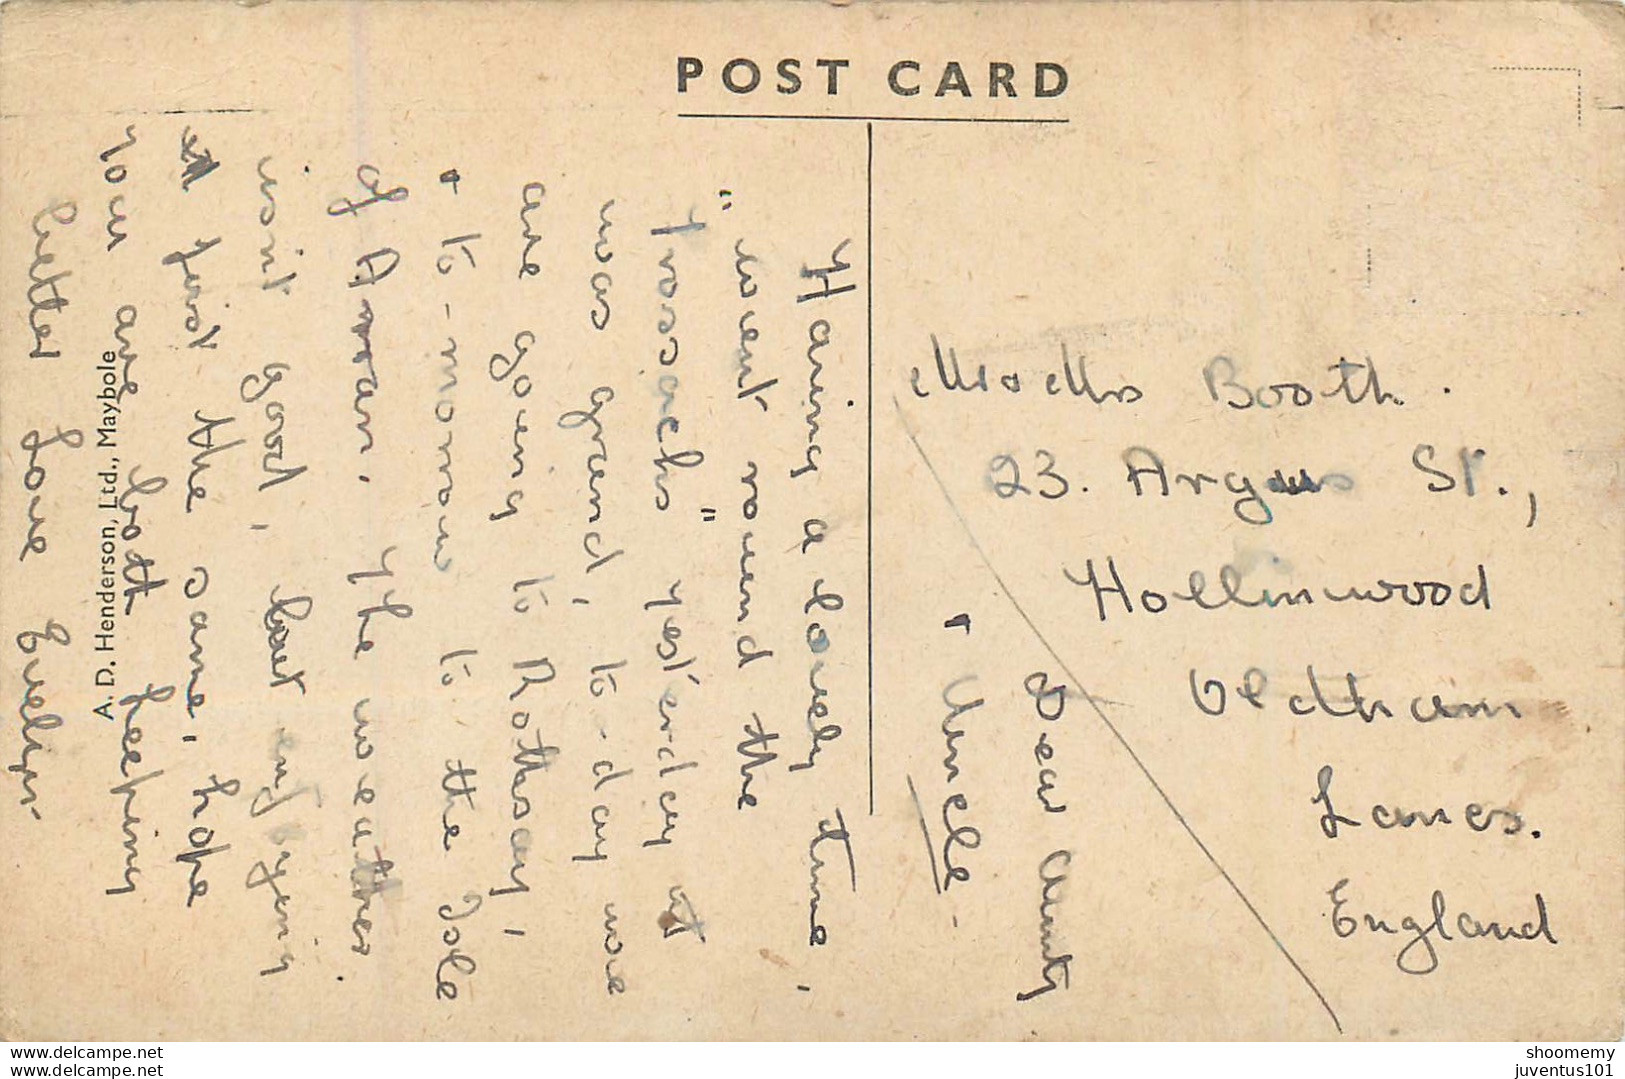 POST CARD
Mr & Mrs Booth.
23. Argus St.,
Hollinwood
Oldham
Lancs.
England
Dear Aunty
& Uncle -
Having a lovely time,
"went round the
Trossachs" yest'erday it
was grand, to-day we
are going to Rothsay,
& to-morrow to the Isle
of Arran. The weather
isn't good, but enjoying
it just the same, hope
you are both keeping
better Love Evelyn
A. D. Henderson, Ltd., Maybole
www.delcampe.net
www.delcampe.net
shoomemy
juventus101